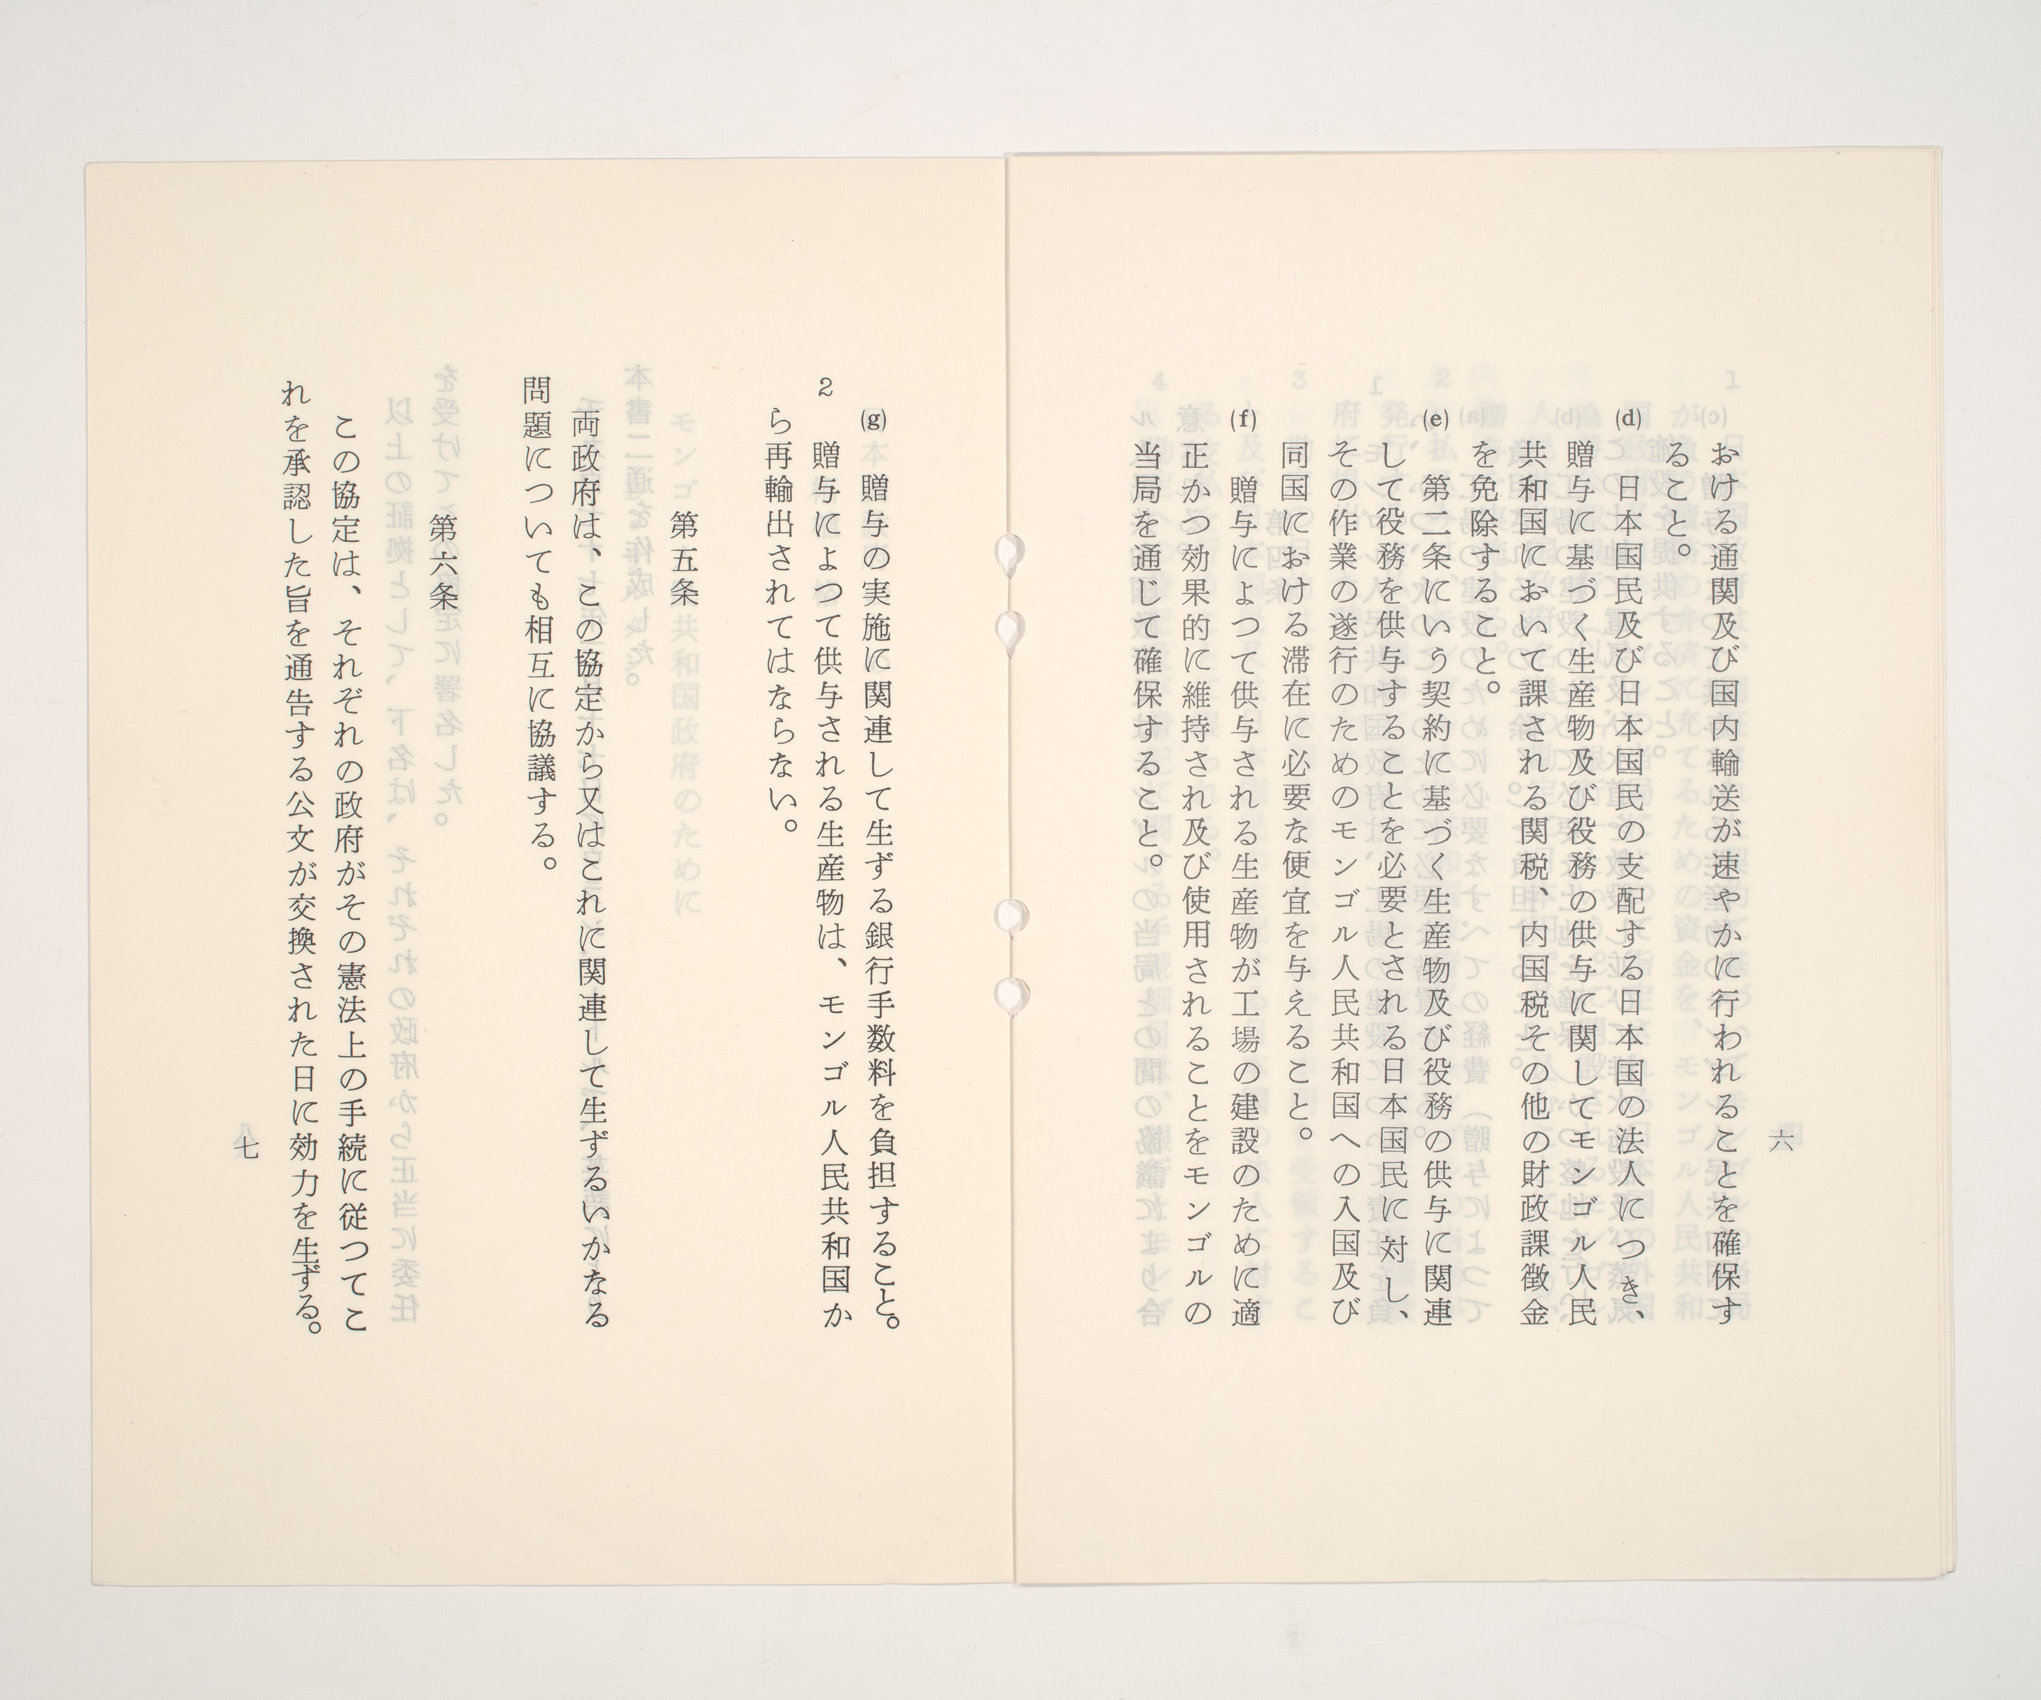 六
おける通関及び国内輸送が速やかに行われることを確保す
ること。
(d) 日本国民及び日本国民の支配する日本国の法人につき、
贈与に基づく生産物及び役務の供与に関してモンゴル人民
共和国において課される関税、内国税その他の財政課徴金
を免除すること。
(e) 第二条にいう契約に基づく生産物及び役務の供与に関連
して役務を供与することを必要とされる日本国民に対し、
その作業の遂行のためのモンゴル人民共和国への入国及び
同国における滞在に必要な便宜を与えること。
(f) 贈与によつて供与される生産物が工場の建設のために適
正かつ効果的に維持され及び使用されることをモンゴルの
当局を通じて確保すること。
(g) 贈与の実施に関連して生ずる銀行手数料を負担すること。
2 贈与によつて供与される生産物は、モンゴル人民共和国か
ら再輸出されてはならない。
第五条
両政府は、この協定から又はこれに関連して生ずるいかなる
問題についても相互に協議する。
第六条
この協定は、それぞれの政府がその憲法上の手続に従つてこ
れを承認した旨を通告する公文が交換された日に効力を生ずる。
七